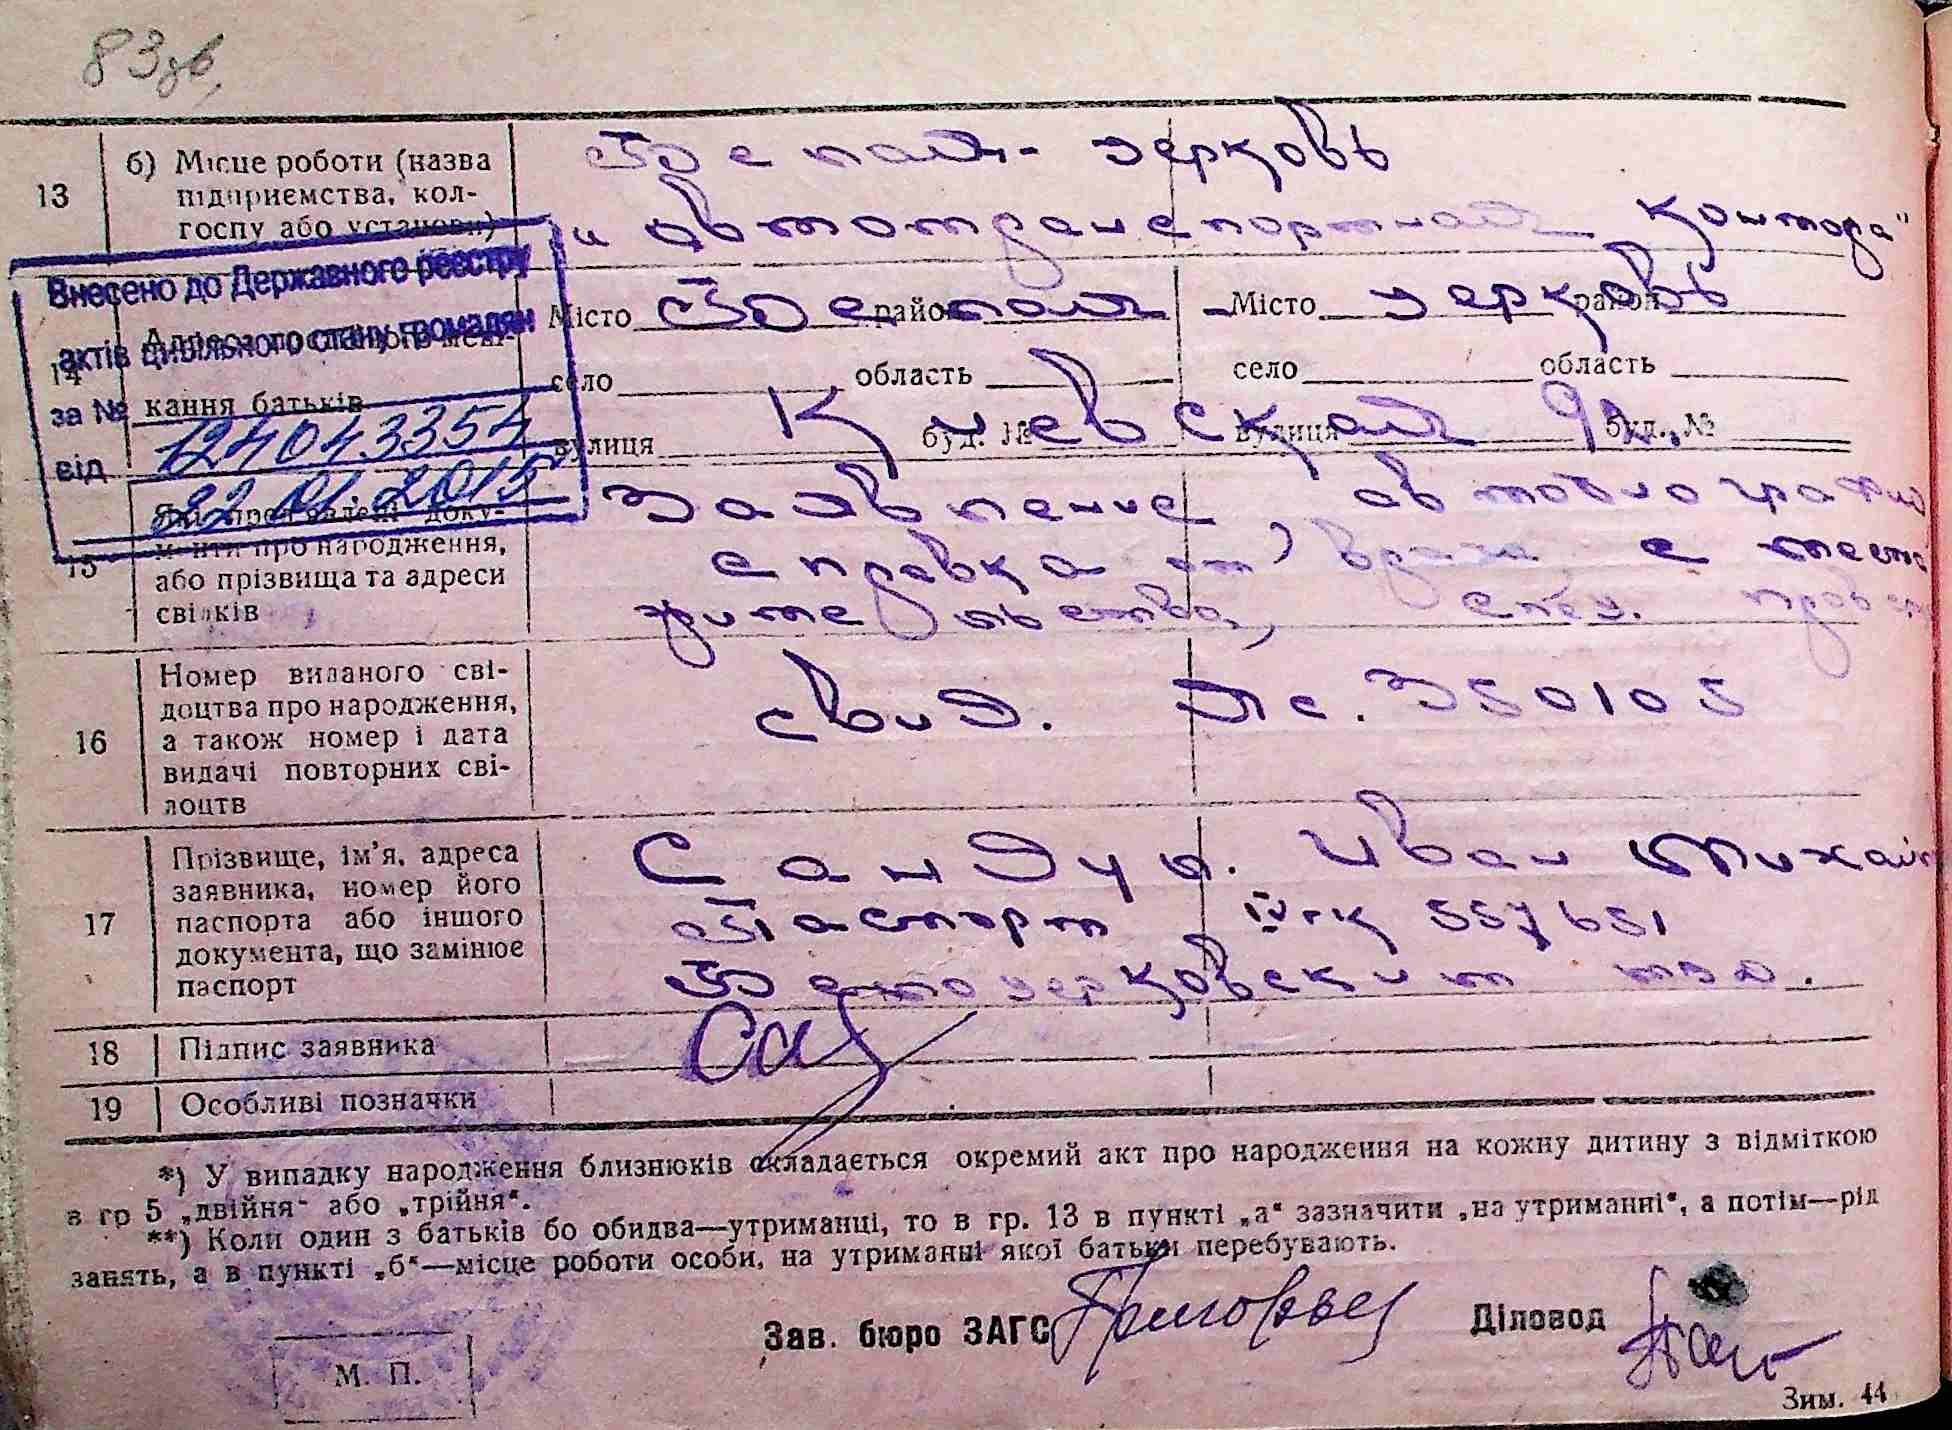 83 зв.
13
б) Місце роботи (назва підприємства, колгоспу або установи)
Белая - Церковь
"Автотранспортная контора"
Внесено до Державного реєстру
актів цивільного стану громадян
за № 124043354
від 22.01.2015
14
кання батьків
Місто Белая район - Місто Церковь район
село область село область
вулиця Киевская буд. № вулиця 92 буд. №
15
документи про народження,
або прізвища та адреси
свідків
Заявление, автобиография
справка от врача с места
жительства, спец. провер
16
Номер виданого сві-
доцтва про народження,
а також номер і дата
видачі повторних сві-
доцтв
свид. 350105
17
Прізвище, ім'я, адреса
заявника, номер його
паспорта або іншого
документа, що замінює
паспорт
Сандул. Иван Михайл
Паспорт 557651
Белоцерковским
18
Підпис заявника
19
Особливі позначки
*) У випадку народження близнюків складається окремий акт про народження на кожну дитину з відміткою
в гр 5 „двійня“ або „трійня“.
**) Коли один з батьків бо обидва—утриманці, то в гр. 13 в пункті „а“ зазначити „на утриманні“, а потім—рід
занять, а в пункті „б“—місце роботи особи, на утриманні якої батьки перебувають.
Зав. бюро ЗАГС
Діловод
М. П.
Зим. 44